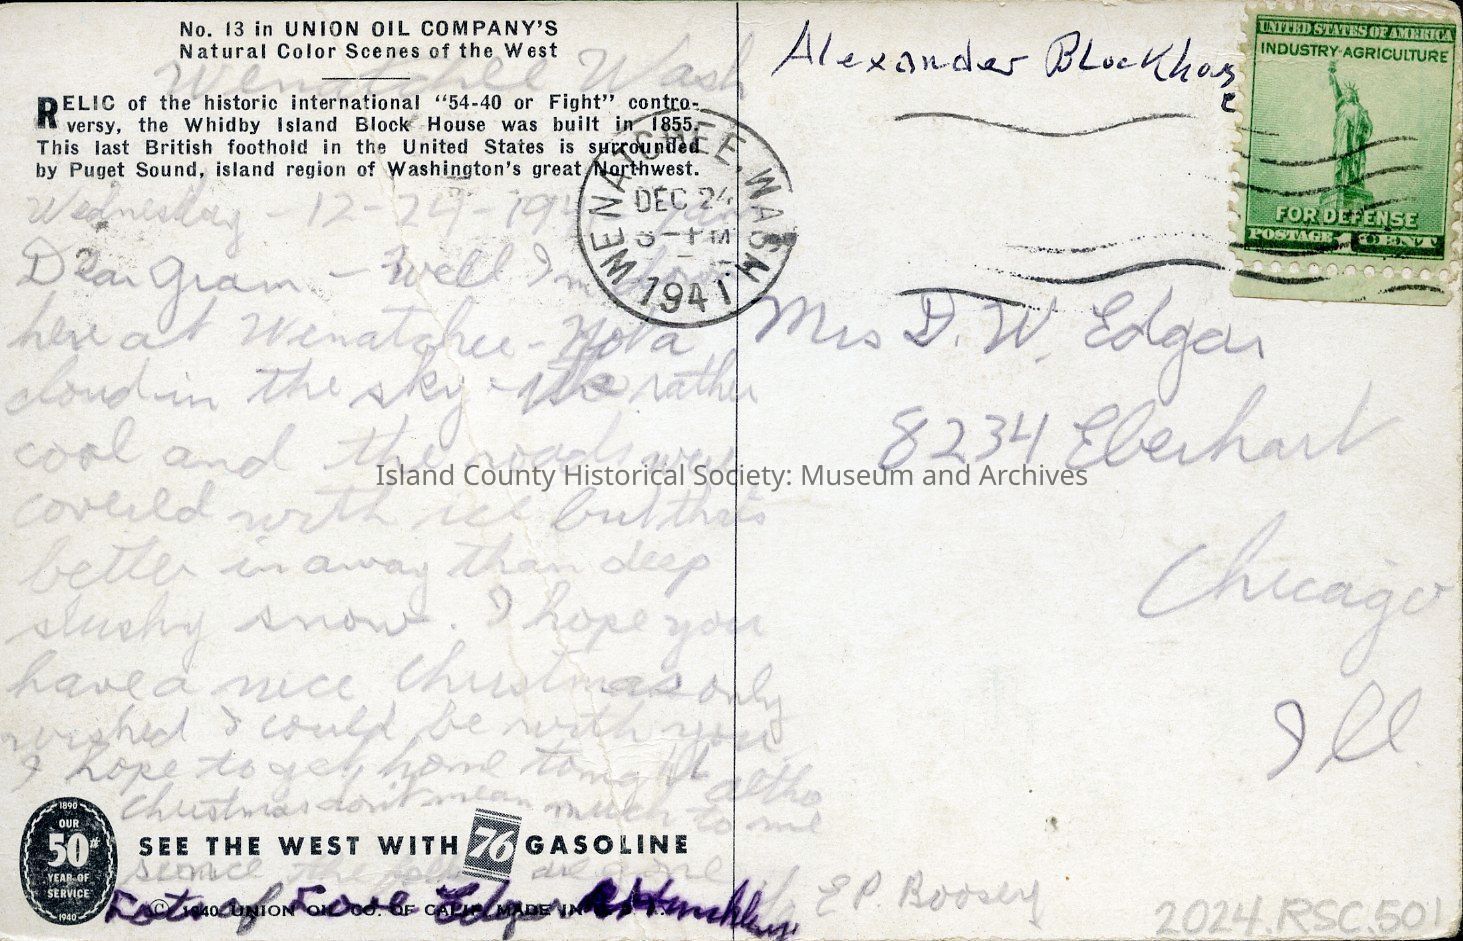 No. 13 in UNION OIL COMPANY'S
Natural Color Scenes of the West
Wenatchee Wash
RELIC of the historic international "54-40 or Fight" contro-
versy, the Whidby Island Block House was built in 1855.
This last British foothold in the United States is surrounded
by Puget Sound, island region of Washington's great Northwest.
Wednesday - 12-24-1941
Dear Gram - Well I'm
here at Wenatchee - Not a
cloud in the sky - rather
cool and the roads were
covered with ice but that's
better in away than deep
slushy snow. I hope you
have a nice Christmas only
wished I could be with you
I hope to get home tonight altho
Christmas don't mean much to me
since the are gone
OUR 50th YEAR OF SERVICE
1890
1940
SEE THE WEST WITH 76 GASOLINE
© 1940, UNION OIL CO. OF CALIF. MADE IN U.S.A.
Lots of Love
WENATCHEE, WASH
DEC 24
3 - PM
1941
Alexander Blockhouse
UNITED STATES OF AMERICA
INDUSTRY·AGRICULTURE
FOR DEFENSE
POSTAGE 1 CENT
Mrs D. W. Edgar
8234 Eberhart
Chicago
Ill.
Island County Historical Society: Museum and Archives
E P. Boosey
2024.RSC.501